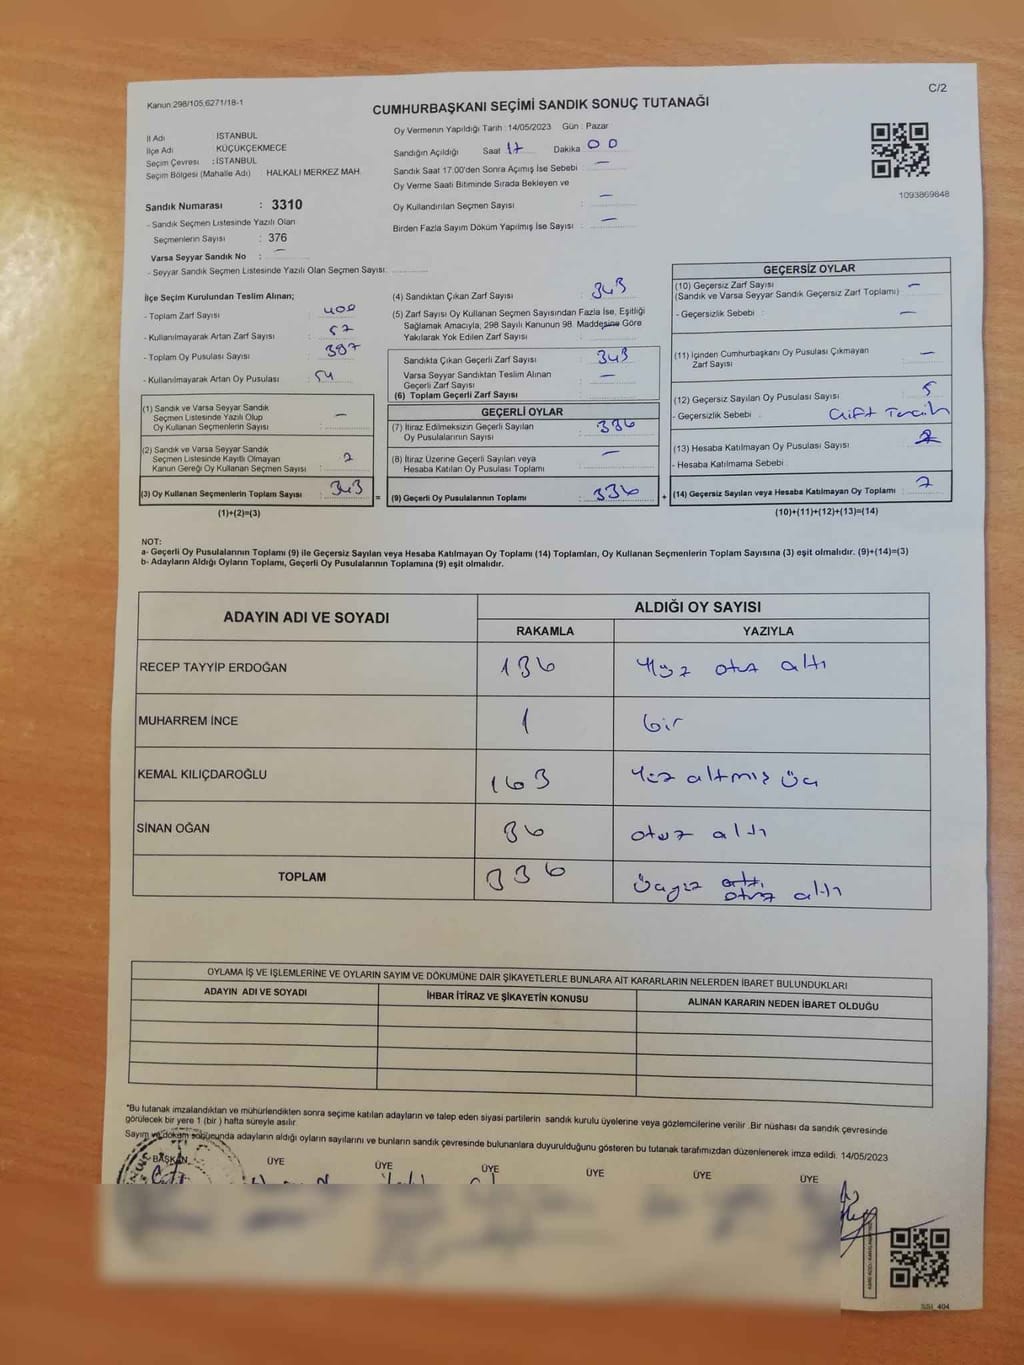 Kanun 298/105,6271/18-1
C/2
CUMHURBAŞKANI SEÇİMİ SANDIK SONUÇ TUTANAĞI
İl Adı İSTANBUL
İlçe Adı : KÜÇÜKÇEKMECE
Seçim Çevresi : İSTANBUL
Seçim Bölgesi (Mahalle Adı) HALKALI MERKEZ MAH.
Sandık Numarası : 3310
- Sandık Seçmen Listesinde Yazılı Olan
Seçmenlerin Sayısı : 376
Varsa Seyyar Sandık No : —
- Seyyar Sandık Seçmen Listesinde Yazılı Olan Seçmen Sayısı:
Oy Vermenin Yapıldığı Tarih : 14/05/2023 Gün : Pazar
Sandığın Açıldığı Saat 17 Dakika 00
Sandık Saat 17:00'den Sonra Açımış İse Sebebi : —
Oy Verme Saati Bitiminde Sırada Bekleyen ve
Oy Kullandırılan Seçmen Sayısı : —
Birden Fazla Sayım Döküm Yapılmış İse Sayısı : —
1093869848
İlçe Seçim Kurulundan Teslim Alınan;
- Toplam Zarf Sayısı : 400
- Kullanılmayarak Artan Zarf Sayısı : 57
- Toplam Oy Pusulası Sayısı : 397
- Kullanılmayarak Artan Oy Pusulası : 54
(1) Sandık ve Varsa Seyyar Sandık
Seçmen Listesinde Yazılı Olup
Oy Kullanan Seçmenlerin Sayısı : —
(2) Sandık ve Varsa Seyyar Sandık
Seçmen Listesinde Kayıtlı Olmayan
Kanun Gereği Oy Kullanan Seçmen Sayısı : 2
(3) Oy Kullanan Seçmenlerin Toplam Sayısı : 343
(1)+(2)=(3)
(4) Sandıktan Çıkan Zarf Sayısı : 343
(5) Zarf Sayısı Oy Kullanan Seçmen Sayısından Fazla İse, Eşitliği
Sağlamak Amacıyla, 298 Sayılı Kanunun 98. Maddesine Göre
Yakılarak Yok Edilen Zarf Sayısı :
Sandıkta Çıkan Geçerli Zarf Sayısı : 343
Varsa Seyyar Sandıktan Teslim Alınan
Geçerli Zarf Sayısı : —
(6) Toplam Geçerli Zarf Sayısı :
GEÇERLİ OYLAR
(7) İtiraz Edilmeksizin Geçerli Sayılan
Oy Pusulalarının Sayısı : 336
(8) İtiraz Üzerine Geçerli Sayılan veya
Hesaba Katılan Oy Pusulası Toplamı : —
= (9) Geçerli Oy Pusulalarının Toplamı : 336
GEÇERSİZ OYLAR
(10) Geçersiz Zarf Sayısı
(Sandık ve Varsa Seyyar Sandık Geçersiz Zarf Toplamı) : —
- Geçersizlik Sebebi : —
(11) İçinden Cumhurbaşkanı Oy Pusulası Çıkmayan
Zarf Sayısı : —
(12) Geçersiz Sayılan Oy Pusulası Sayısı : 5
- Geçersizlik Sebebi : Çift Tercih
(13) Hesaba Katılmayan Oy Pusulası Sayısı : 2
- Hesaba Katılmama Sebebi :
+ (14) Geçersiz Sayılan veya Hesaba Katılmayan Oy Toplamı : 7
(10)+(11)+(12)+(13)=(14)
NOT:
a- Geçerli Oy Pusulalarının Toplamı (9) ile Geçersiz Sayılan veya Hesaba Katılmayan Oy Toplamı (14) Toplamları, Oy Kullanan Seçmenlerin Toplam Sayısına (3) eşit olmalıdır. (9)+(14)=(3)
b- Adayların Aldığı Oyların Toplamı, Geçerli Oy Pusulalarının Toplamına (9) eşit olmalıdır.
ADAYIN ADI VE SOYADI ALDIĞI OY SAYISI
RAKAMLA YAZIYLA
RECEP TAYYİP ERDOĞAN 136 Yüz otuz altı
MUHARREM İNCE 1 bir
KEMAL KILIÇDAROĞLU 163 Yüz altmış üç
SİNAN OĞAN 36 otuz altı
TOPLAM 336 üçyüz otuz altı
OYLAMA İŞ VE İŞLEMLERİNE VE OYLARIN SAYIM VE DÖKÜMÜNE DAİR ŞİKAYETLERLE BUNLARA AİT KARARLARIN NELERDEN İBARET BULUNDUKLARI
ADAYIN ADI VE SOYADI İHBAR İTİRAZ VE ŞİKAYETİN KONUSU ALINAN KARARIN NEDEN İBARET OLDUĞU
*Bu tutanak imzalandıktan ve mühürlendikten sonra seçime katılan adayların ve talep eden siyasi partilerin sandık kurulu üyelerine veya gözlemcilerine verilir .Bir nüshası da sandık çevresinde
görülecek bir yere 1 (bir ) hafta süreyle asılır.
Sayım ve döküm sonucunda adayların aldığı oyların sayılarını ve bunların sandık çevresinde bulunanlara duyurulduğunu gösteren bu tutanak tarafımızdan düzenlenerek imza edildi. 14/05/2023
BAŞKAN ÜYE ÜYE ÜYE ÜYE ÜYE ÜYE
SSI_404